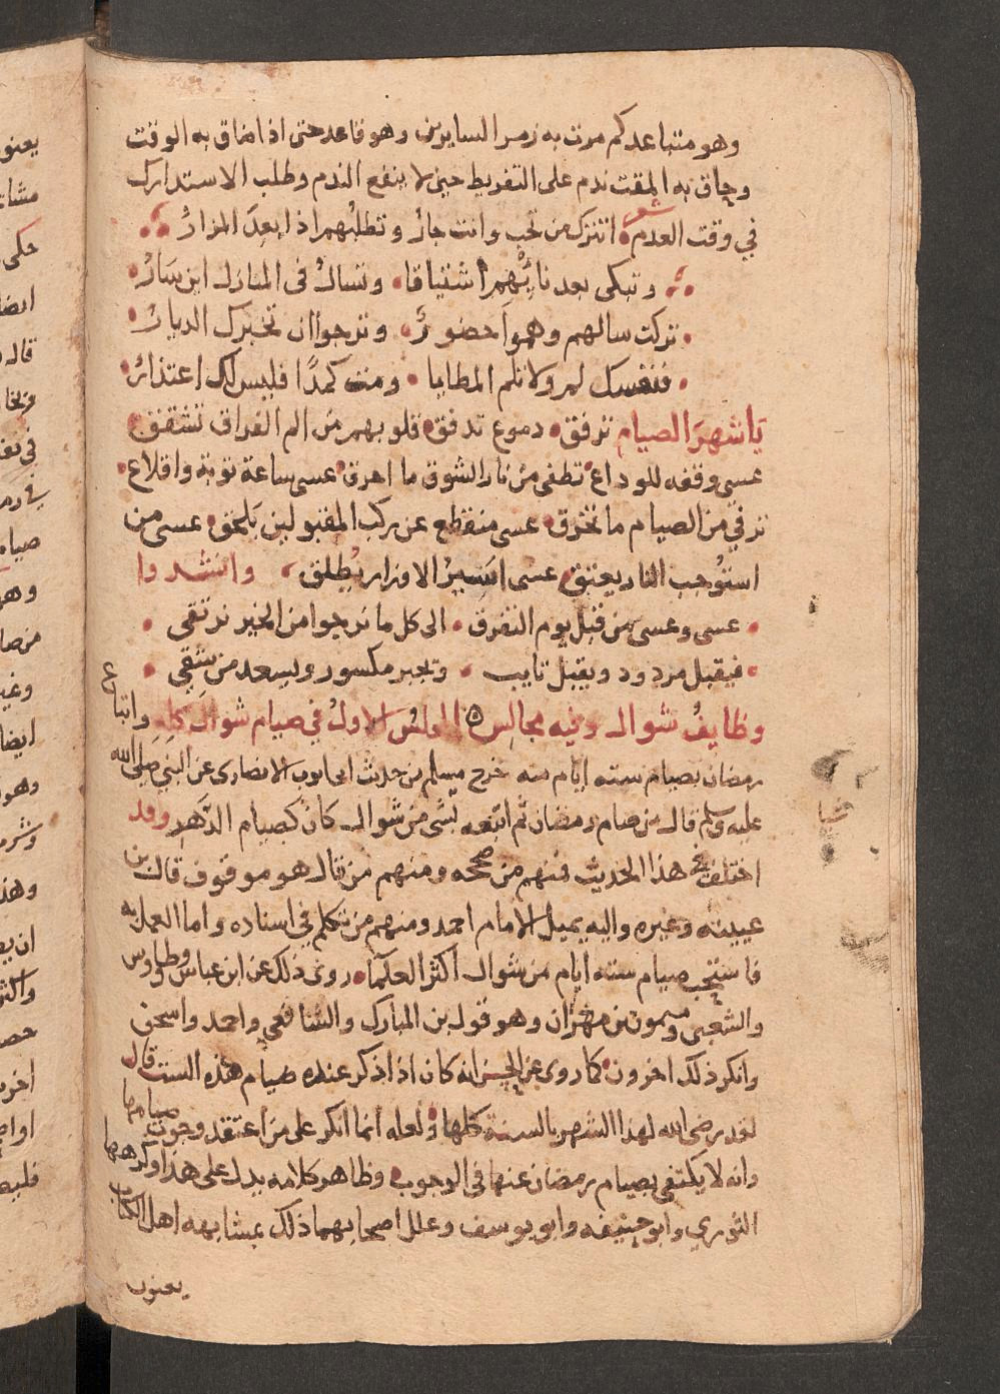 وهو متباعد كم مرت به زمر السايرين وهو قاعد حتى اذا ضاق به الوقت
وحاق به المقت ندم على التفريط حين لا ينفع الندم وطلب الاستدراك
في وقت العدم شعر اتترك من تحب وانت جار وتطلبهم اذا بعد المزار
وتبكي بعد نايهم اشتياقا وتسال في المنازل اين سار
تركت سالهم وهموا حضور وترجوا ان تخبرك الديار
فنفسك لم ولا تلم المطايا ومت كمدًا فليس لك اعتذار
يا شهرَ الصيام ترفق دموع تدفق قلوبهم من الم الفراق تشقق
عسى وقفه للوداع تطفى من نار الشوق ما احرق عسى ساعة توبة واقلاع
ترفي من الصيام ما تخرق عسى منقطع عن ركب المقبولين يلحق عسى من
استوجب النار يعتق عسى اسير الاوزار يطلق وانشدوا
عسى وعسى من قبل يوم التفرق الى كل ما نرجوا من الخير نرتقي
فيقبل مردود ويقبل تايب وتجبر مكسور ويسعد من شقي
وظايف شوال وفيه مجالس ه المجلس الاول في صيام شوال كله واتباع
رمضان بصيام سته ايام منه خرج مسلم من حديث ابي ايوب الانصاري عن النبي صلى الله
عليه وسلم قال من صام رمضان ثم اتبعه بشى من شوال كان كصيام الدهر وقد
اختلف في هذا الحديث فمنهم من صححه ومنهم من قال هو موقوف قال بن
عيينه وغيره واليه يميل الامام احمد ومنهم من تكلم في اسناده واما العمل به
فاستحب صيام سته ايام من شوال اكثر العلما روى ذلك عن ابن عباس وطاووس
والشعبي وميمون بن مهران وهو قول بن المبارك والشافعي واحمد واسحق
وانكر ذلك اخرون كما روى عن الحسن انه كان اذا ذكر عنده صيام هذه الست قال
لقد رضى الله لهذا الشهر بالسنة كلها ولعله انما انكر على من اعتقد وجوب صيامها
وانه لا يكتفى بصيام رمضان عنها في الوجوب وظاهر كلامه يدل على هذا وكرهها
الثوري وابو حنيفه وابو يوسف وعلل اصحابهما ذلك بمشابهه اهل الكتاب
يعنون